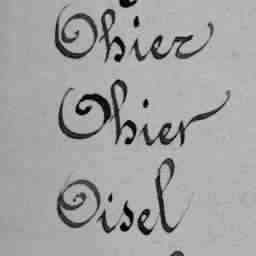 Ohier
Ohier
Oisel